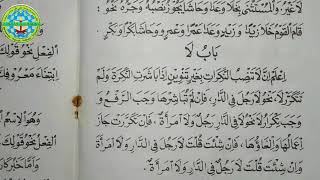 لَا غَيْرُ، وَالْمُسْتَثْنَى بِخَلَا وَعَدَا وَحَاشَا يَجُوزُ نَصْبُهُ وَجَرُّهُ نَحْوُ
قَامَ الْقَوْمُ خَلَا زَيْدًا وَزَيْدٍ وَعَدَا عَمْرًا وَعَمْرٍو وَحَاشَا بَكْرًا وَبَكْرٍ
بَابُ لَا
اِعْلَمْ اَنَّ لَا تَنْصِبُ النَّكِرَاتِ بِغَيْرِ تَنْوِينٍ اِذَا بَاشَرَتِ النَّكِرَةَ وَلَمْ
تَتَكَرَّرْ لَا، نَحْوُ لَا رَجُلَ فِي الدَّارِ، فَاِنْ لَمْ تُبَاشِرْهَا وَجَبَ الرَّفْعُ وَ
وَجَبَ تَكْرَارُ لَا نَحْوُ لَا فِي الدَّارِ رَجُلٌ وَلَا امْرَأَةٌ، فَاِنْ تَكَرَّرَتْ جَازَ
اِعْمَالُهَا وَاِلْغَاؤُهَا، فَاِنْ شِئْتَ قُلْتَ لَا رَجُلَ فِي الدَّارِ وَلَا امْرَأَةَ
وَاِنْ شِئْتَ قُلْتَ لَا رَجُلٌ فِي الدَّارِ وَلَا امْرَأَةٌ.
الْفِعْلِ نَحْوُ قَوْلِكَ
ابْتِغَاءَ مَعْرُوفِكَ
وَهُوَ الِاسْمُ
الْفِعْلُ نَحْوُ قَوْلِكَ
وَاَمَّا خَبَرُ كَانَ